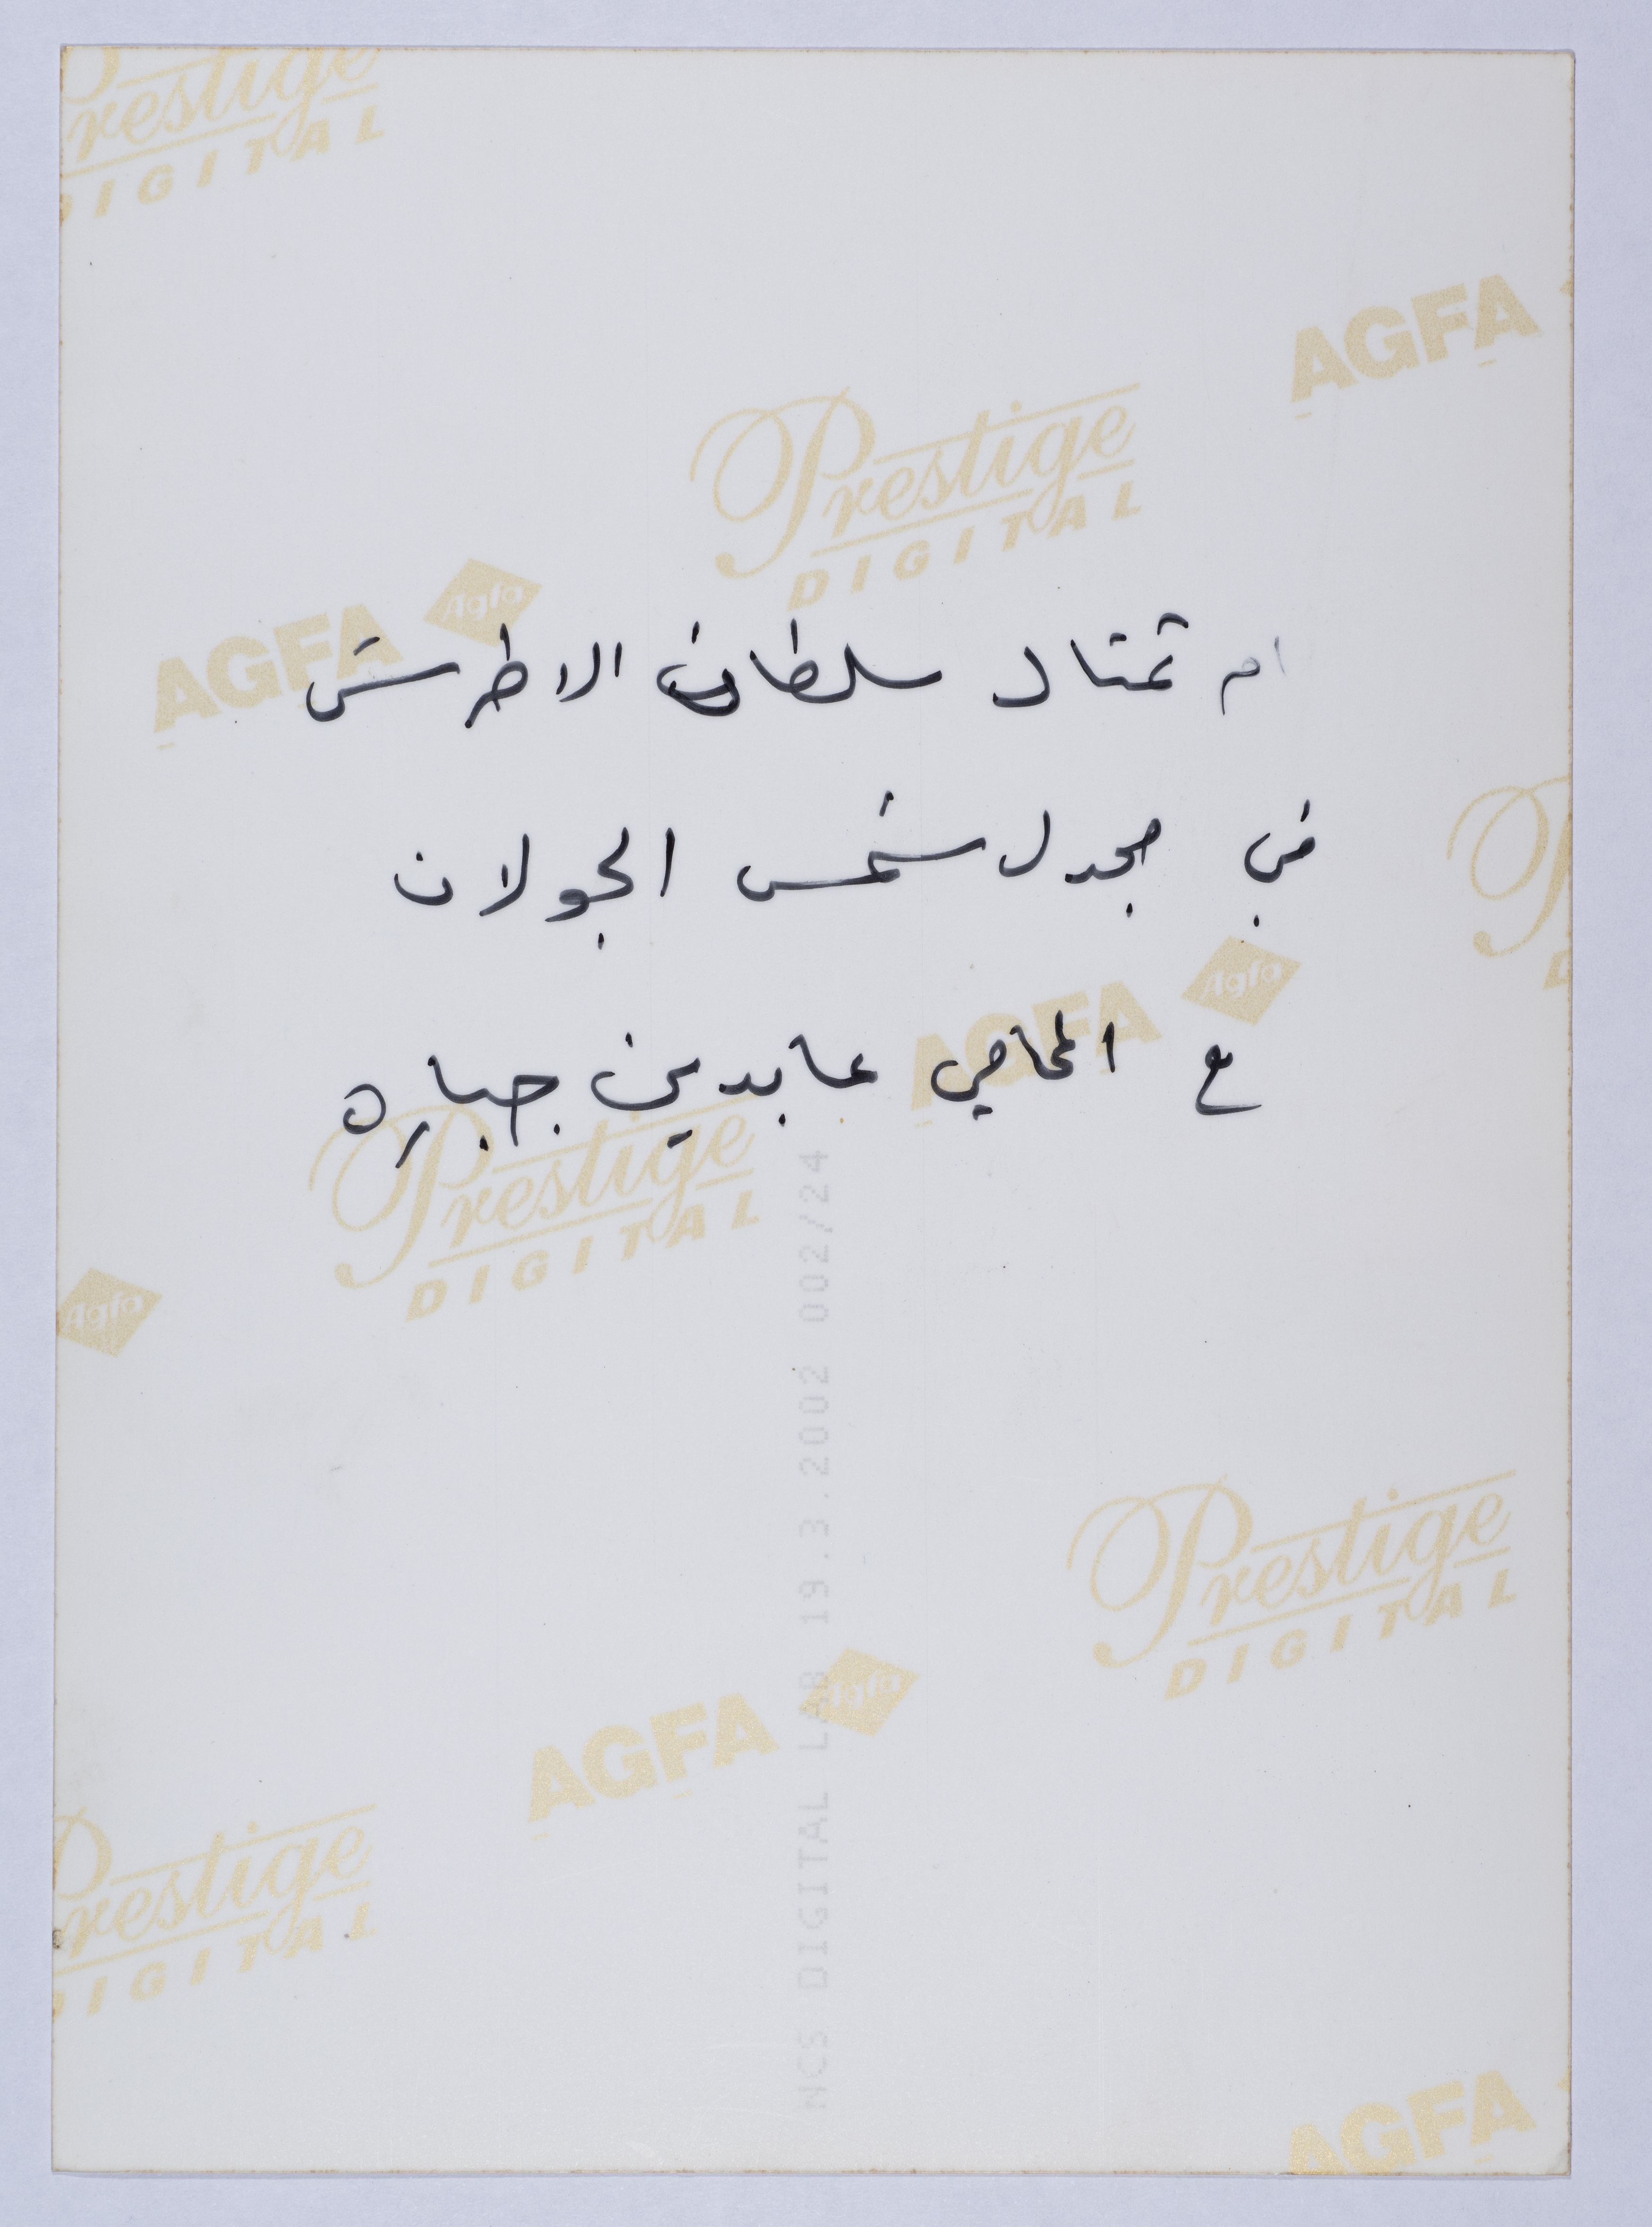 Prestige
DIGITAL
AGFA
Prestige
DIGITAL
AGFA Agfa
ام تمثال سلطان الاطرش
في مجدل شمس الجولان
AGFA Agfa
مع المحامي عابدين جباره
Prestige
DIGITAL
Agfa
Prestige
DIGITAL
AGFA Agfa
Prestige
DIGITAL
AGFA
NCS DIGITAL LAB 19.3.2002 002/24